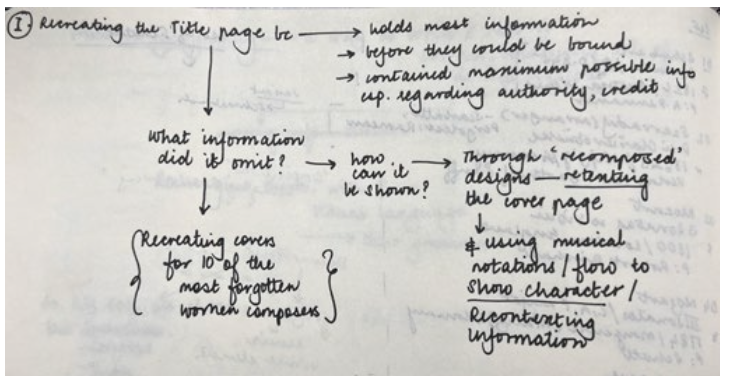 I. Recreating the Title page bc → holds most information
→ before they could be bound
→ contained maximum possible info
esp. regarding authority, credit
What information
did it omit? → how can it
be shown? → Through 'recomposed'
designs — retenting
the cover page
↓
& using musical
notations / flow to
show character /
Recontexting
information
↓
{Recreating covers
for 10 of the
most forgotten
women composers}